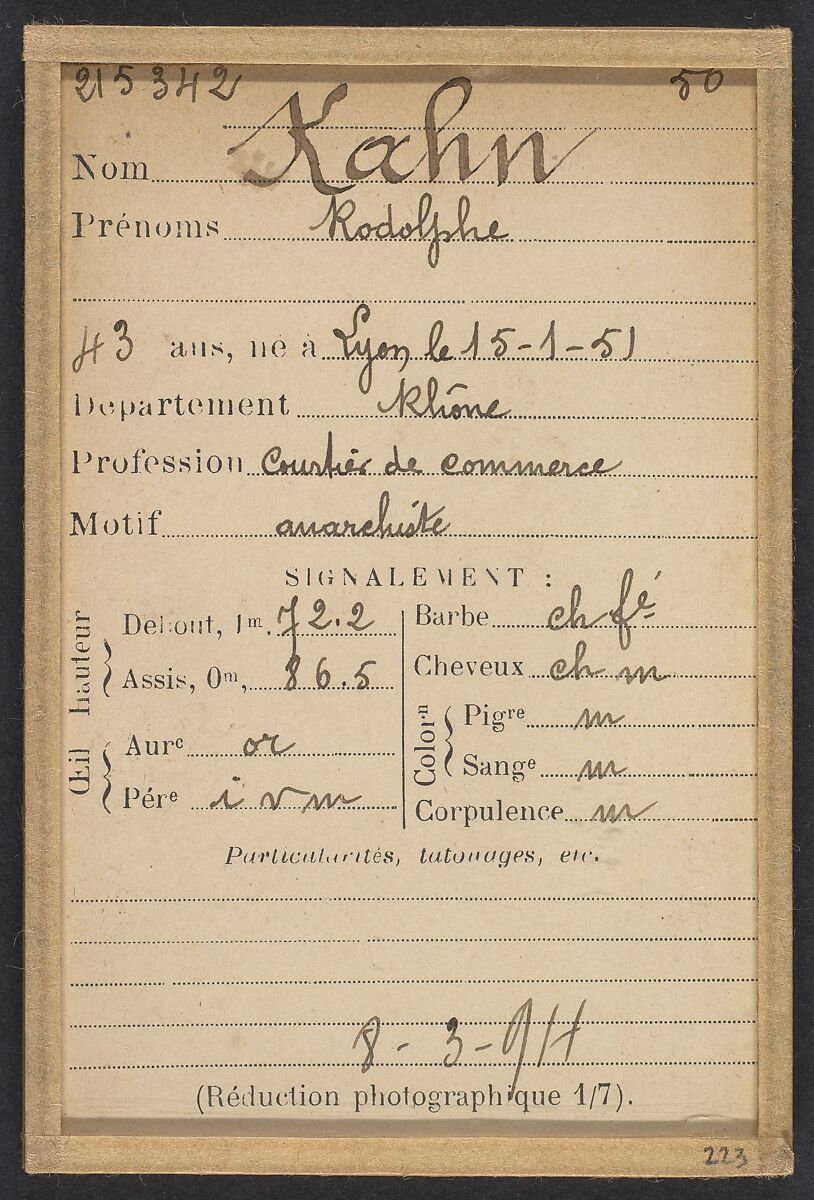 215342 50
Nom Kahn
Prénoms Rodolphe
43 ans, né à Lyon le 15-1-51
Département Rhône
Profession Courtier de commerce
Motif anarchiste
SIGNALEMENT :
hauteur
Debout, 1m, 72.2
Assis, 0m, 86.5
Œil
Aurᵉ or
Pérᵉ i v m
Barbe ch fé
Cheveux ch m
Colorⁿ
Pigʳᵉ m
Sangᵉ m
Corpulence m
Particularités, tatouages, etc.
8-3-94
(Réduction photographique 1/7).
223